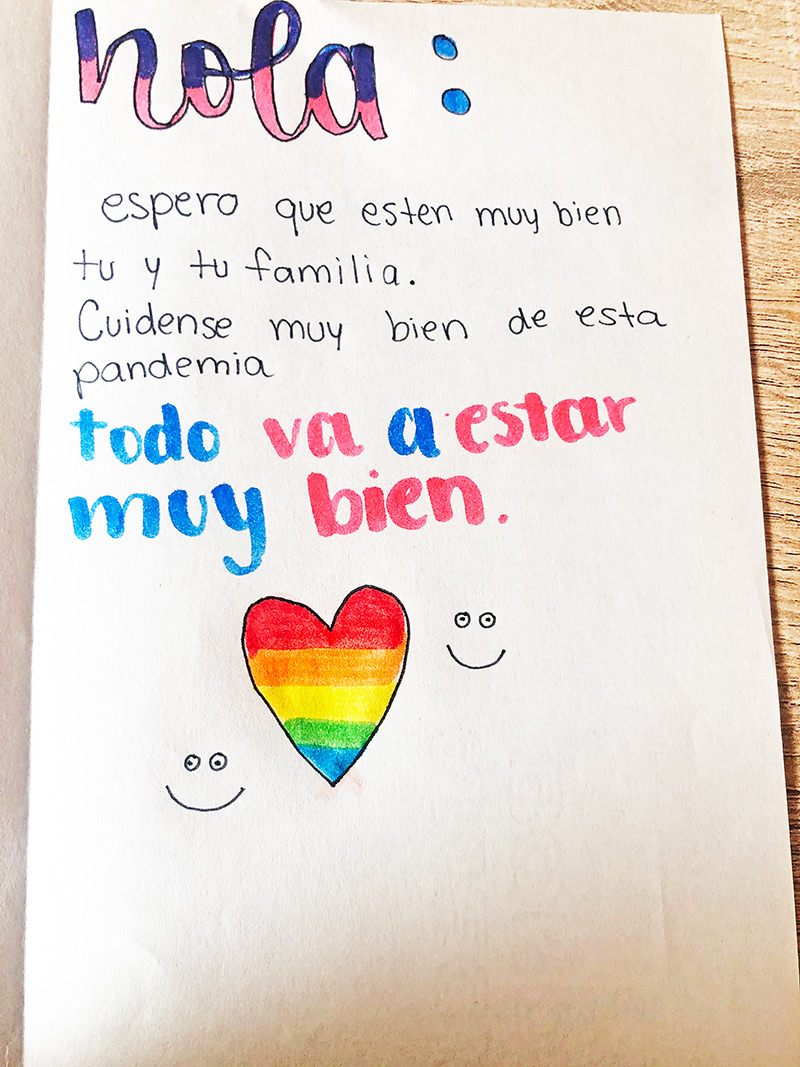 hola :
espero que esten muy bien
tu y tu familia.
Cuidense muy bien de esta
pandemia
todo va a estar
muy bien.